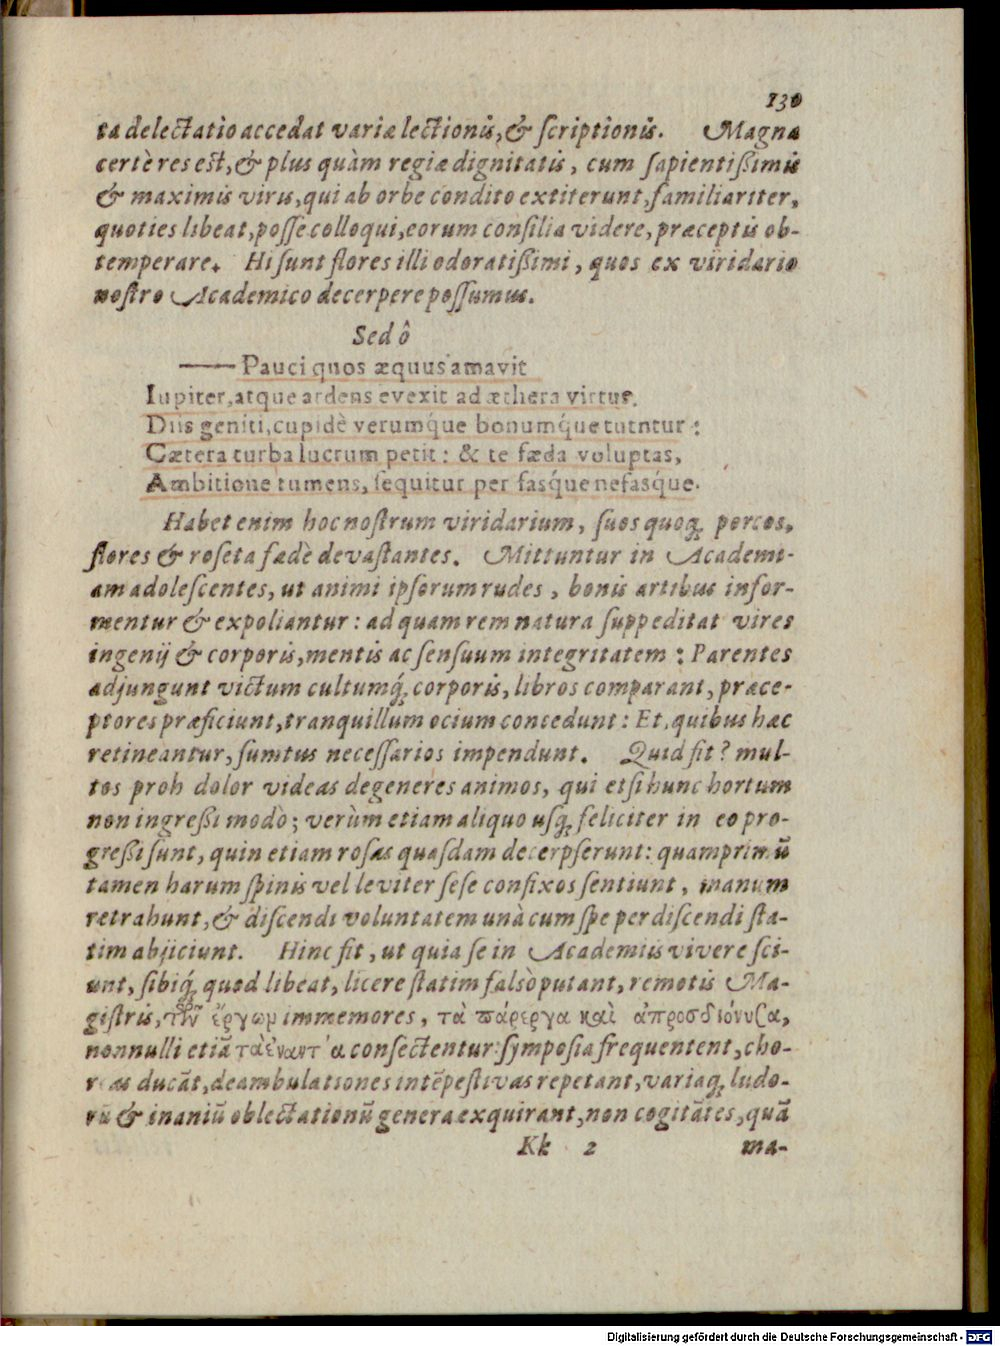 130
ta delectatio accedat variæ lectionis, & scriptionis. Magna
certè res est, & plus quàm regiæ dignitatis, cum sapientißimis
& maximis viris, qui ab orbe condito extiterunt, familiariter,
quoties libeat, posse colloqui, eorum consilia videre, præceptis ob-
temperare. Hi sunt flores illi odoratißimi, quos ex viridario
nostro Academico decerpere possumus.
Sed ô
—— Pauci quos æquus amavit
Iupiter, atque ardens evexit ad æthera virtus,
Diis geniti, cupidè verumq́ue bonumq́ue tutntur:
Cætera turba lucrum petit: & te fæda voluptas,
Ambitione tumens, sequitur per fasq́ue nefasq́ue.
Habet enim hoc nostrum viridarium, suos quoq; porcos,
flores & roseta fædè devastantes. Mittuntur in Academi-
am adolescentes, ut animi ipsorum rudes, bonis artibus infor-
mentur & expoliantur: ad quam rem natura suppeditat vires
ingenij & corporis, mentis ac sensuum integritatem: Parentes
adjungunt victum cultumq́; corporis, libros comparant, præce-
ptores præficiunt, tranquillum ocium concedunt: Et, quibus hæc
retineantur, sumtus necessarios impendunt. Quid fit? mul-
tos proh dolor videas degeneres animos, qui etsi hunc hortum
non ingreßi modò; verùm etiam aliquo usq; feliciter in eo pro-
greßi sunt, quin etiam rosas quasdam decerpserunt: quamprimū
tamen harum spinis vel leviter sese confixos sentiunt, manum
retrahunt, & discendi voluntatem unà cum spe perdiscendi sta-
tim abjiciunt. Hinc fit, ut quia se in Academiis vivere sci-
unt, sibiq́; quod libeat, licere statim falsò putant, remotis Ma-
gistris, τῶν ἔργων immemores, τὰ πάρεργα καὶ ἀπροσδιόνυσα,
nonnulli etiā τὰ ἐναντία consectentur: symposia frequentent, cho-
reas ducāt, deambulationes intēpestivas repetant, variaq; ludo-
rū & inaniū oblectationū genera exquirant, non cogitātes, quā
Kk 2 ma-
Digitalisierung gefördert durch die Deutsche Forschungsgemeinschaft - DFG